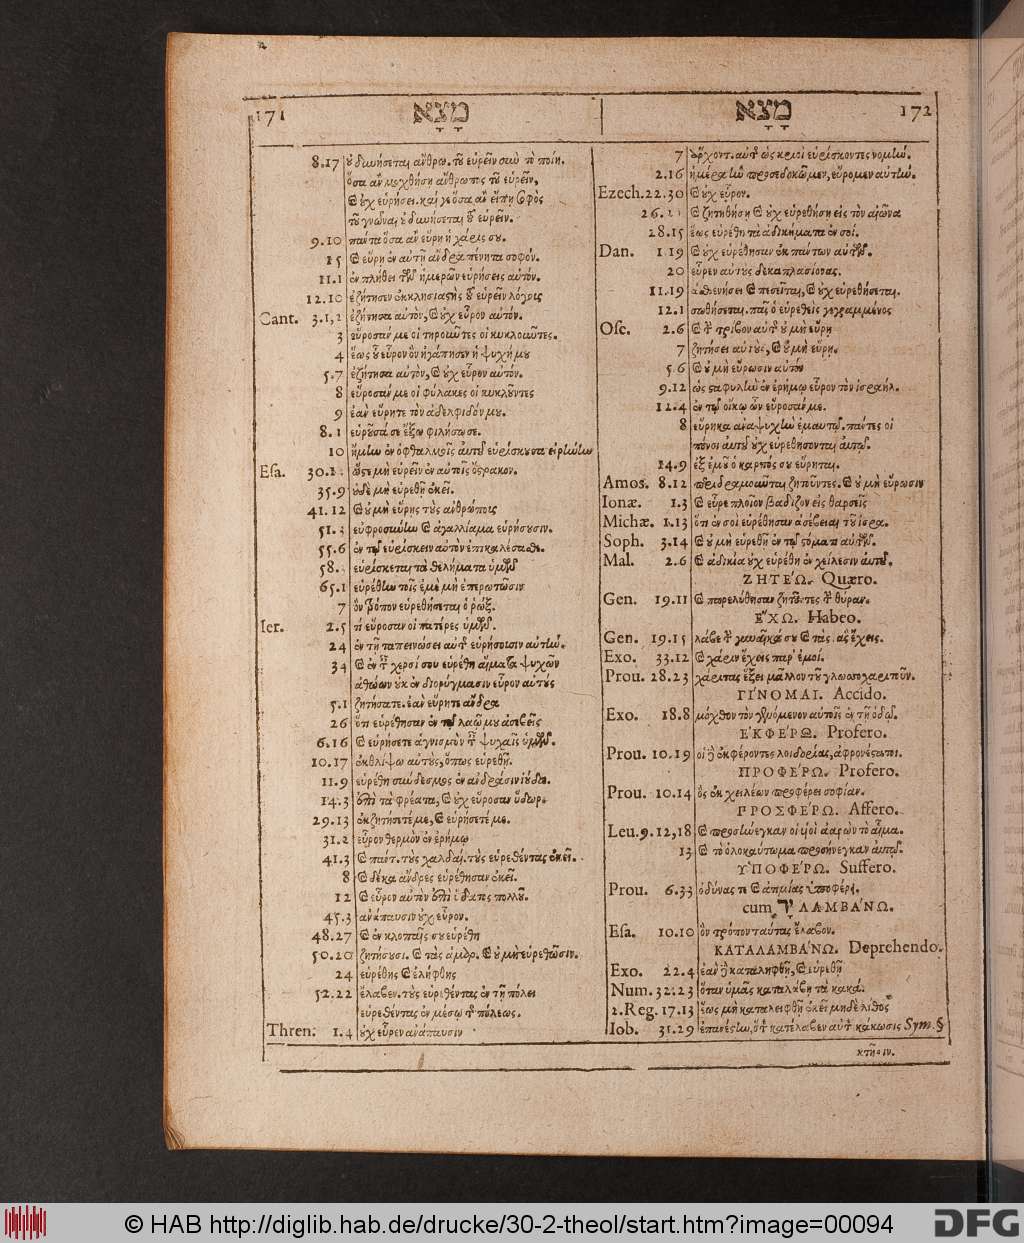 171 מָצָא
8.17 οὐ δυνήσεται ἄνθρω. τοῦ εὑρεῖν σὺν τὸ ποίη.
ὅσα ἂν μοχθήσῃ ἄνθρωπος τοῦ εὑρεῖν,
καὶ οὐχ εὑρήσει. καί γε ὅσα ἂν εἴπῃ σοφὸς
τοῦ γνῶναι, οὐ δυνήσεται τοῦ εὑρεῖν.
9.10 πάντα ὅσα ἂν εὕρῃ ἡ χείρ σου.
15 καὶ εὕρῃ ἐν αὐτῇ ἄνδρα πένητα σοφόν.
11.1 ἐν πλήθει τῶν ἡμερῶν εὑρήσεις αὐτόν.
12.10 ἐζήτησεν ἐκκλησιαστὴς τοῦ εὑρεῖν λόγους
Cant. 3.1,2 ἐζήτησα αὐτὸν, καὶ οὐχ εὗρον αὐτόν.
3 εὕροσάν με οἱ τηροῦντες οἱ κυκλοῦντες.
4 ἕως οὗ εὗρον ὃν ἠγάπησεν ἡ ψυχή μου
5.7 ἐζήτησα αὐτὸν, καὶ οὐχ εὗρον αὐτόν.
8 εὕροσάν με οἱ φύλακες οἱ κυκλοῦντες
9 ἐὰν εὕρητε τὸν ἀδελφιδόν μου.
8.1 εὑροῦσά σε ἔξω φιλήσω σε.
10 ἤμην ἐν ὀφθαλμοῖς αὐτοῦ εὑρίσκουσα εἰρήνην
Esa. 30.1. ὥστε μὴ εὑρεῖν ἐν αὐτοῖς ὄστρακον.
35.9 οὐδὲ μὴ εὑρεθῇ ἐκεῖ.
41.12 καὶ οὐ μὴ εὕρῃς τοὺς ἀνθρώπους
51.3 εὐφροσύνην καὶ ἀγαλλίαμα εὑρήσουσιν.
55.6 ἐν τῷ εὑρίσκειν αὐτὸν ἐπικαλέσασθε.
58. εὑρίσκεται τὰ θελήματα ὑμῶν
65.1 εὑρέθην τοῖς ἐμὲ μὴ ἐπερωτῶσιν
7 ὃν τρόπον εὑρεθήσεται ὁ ῥώξ.
Ier. 2.5 τί εὕροσαν οἱ πατέρες ὑμῶν.
24 ἐν τῇ ταπεινώσει αὐτοῦ εὑρήσουσιν αὐτήν.
34 καὶ ἐν ταῖς χερσί σου εὑρέθη αἵματα ψυχῶν
ἀθώων οὐκ ἐν διορύγμασιν εὗρον αὐτούς
5.1 ζητήσατε. ἐὰν εὕρητε ἄνδρα
26 ὅτι εὑρέθησαν ἐν τῷ λαῷ μου ἀσεβεῖς
6.16 καὶ εὑρήσετε ἁγνισμὸν ταῖς ψυχαῖς ὑμῶν.
10.17 ἐκθλίψω αὐτοὺς, ὅπως εὑρεθῇ.
11.9 εὑρέθη σύνδεσμος ἐν ἀνδράσιν ἰούδα.
14.3 ἐπὶ τὰ φρέατα, καὶ οὐχ εὕροσαν ὕδωρ.
29.13 ἐκζητήσετέ με, καὶ εὑρήσετέ με.
31.2 εὗρον θερμὸν ἐν ἐρήμῳ
41.3 καὶ πάντ. τοὺς χαλδαί. τοὺς εὑρεθέντας ἐκεῖ.
8 καὶ δέκα ἄνδρες εὑρέθησαν ἐκεῖ.
12 καὶ εὗρεν αὐτὸν ἐπὶ ὕδατος πολλοῦ.
45.3 ἀνάπαυσιν οὐχ εὗρον.
48.27 καὶ ἐν κλοπαῖς σου εὑρέθη
50.20 ζητήσουσι. καὶ τὰς ἁμαρ. καὶ οὐ μὴ εὑρεθῶσιν.
24 εὑρέθης καὶ ἐλήφθης
52.22 ἔλαβεν. τοὺς εὑρεθέντας ἐν τῇ πόλει
εὑρεθέντας ἐν μέσῳ τῆς πόλεως.
Thren. 1.4 οὐχ εὗρεν ἀνάπαυσιν
מָצָא 172
7 ἄρχοντ. αὐτῆς ὡς κριοὶ εὑρίσκοντες νομήν.
2.16 ἡμέρα ἣν προσεδοκῶμεν, εὕρομεν αὐτήν.
Ezech. 22.30 καὶ οὐχ εὗρον.
26.2 καὶ ζητηθήσῃ καὶ οὐχ εὑρεθήσῃ εἰς τὸν αἰῶνα
28.15 ἕως εὑρέθη τὰ ἀδικήματα ἐν σοί.
Dan. 1.19 καὶ οὐχ εὑρέθησαν ἐκ πάντων αὐτῶν.
20 εὗρεν αὐτοὺς δεκαπλασίονας.
11.19 ἀσθενήσει καὶ πεσεῖται, καὶ οὐχ εὑρεθήσεται.
12.1 σωθήσεται. πᾶς ὁ εὑρεθεὶς γεγραμμένος
Ose. 2.6 καὶ τὴν τρίβον αὐτῆς οὐ μὴ εὕρῃ
7 ζητήσει αὐτοὺς, καὶ οὐ μὴ εὕρῃ.
5.6 καὶ οὐ μὴ εὕρωσιν αὐτόν
9.12 ὡς σταφυλὴν ἐν ἐρήμῳ εὗρον τὸν ἰσραήλ.
12.4 ἐν τῷ οἴκῳ ὢν εὕροσάν με.
8 εὕρηκα ἀναψυχὴν ἐμαυτῷ. πάντες οἱ
πόνοι αὐτοῦ οὐχ εὑρεθήσονται αὐτῷ.
14.9 ἐξ ἐμοῦ ὁ καρπός σου εὕρηται.
Amos. 8.12 περιδραμοῦνται ζητοῦντες. καὶ οὐ μὴ εὕρωσιν
Ionæ. 1.3 καὶ εὗρε πλοῖον βαδίζον εἰς θαρσεῖς
Michæ. 1.13 ὅτι ἐν σοὶ εὑρέθησαν ἀσέβειαι τοῦ ἰσρα.
Soph. 3.14 καὶ οὐ μὴ εὑρεθῇ ἐν τῷ στόματι αὐτῶν.
Mal. 2.6 καὶ ἀδικία οὐχ εὑρέθη ἐν χείλεσιν αὐτοῦ.
ΖΗΤΕΏ. Quæro.
Gen. 19.11 καὶ παρελύθησαν ζητοῦντες τὴν θύραν.
ἜΧΩ. Habeo.
Gen. 19.15 λάβε τὴν γυναῖκά σου καὶ τὰς. ἃς ἔχεις.
Exo. 33.12 καὶ χάριν ἔχεις παρ' ἐμοί.
Prou. 28.23 χάριτας ἕξει μᾶλλον τοῦ γλωσσοχαριτοῦν.
ΓΊΝΟΜΑΙ. Accido.
Exo. 18.8 μόχθον τὸν γενόμενον αὐτοῖς ἐν τῇ ὁδῷ.
ἘΚΦΈΡΩ. Profero.
Prou. 10.19 οἱ δὲ ἐκφέροντες λοιδορίας, ἀφρονέστατοι.
ΠΡΟΦΈΡΩ. Profero.
Prou. 10.14 ὃς ἐκ χειλέων προφέρει σοφίαν.
ΠΡΟΣΦΈΡΩ. Affero.
Leu. 9.12,18 καὶ προσήνεγκαν οἱ υἱοὶ ἀαρὼν τὸ αἷμα.
13 καὶ τὸ ὁλοκαύτωμα προσήνεγκαν αὐτῷ.
ὙΠΟΦΈΡΩ. Suffero.
Prou. 6.33 ὀδύνας τε καὶ ἀτιμίας ὑποφέρει.
cum יָד ΛΑΜΒΆΝΩ.
Esa. 10.10 ὃν τρόπον ταύτας ἔλαβον.
ΚΑΤΑΛΑΜΒΆΝΩ. Deprehendo.
Exo. 22.4 ἐὰν δὲ καταληφθῇ, καὶ εὑρεθῇ
Num. 32.23 ὅταν ὑμᾶς καταλάβῃ τὰ κακά.
2.Reg. 17.13 ἕως μὴ καταλειφθῇ ἐκεῖ μηδὲ λίθος
Iob. 31.29 ἐπανέστην, ὅτε κατέλαβεν αὐτὸν κάκωσις Sym. §
κτῆσιν.
© HAB http://diglib.hab.de/drucke/30-2-theol/start.htm?image=00094
DFG